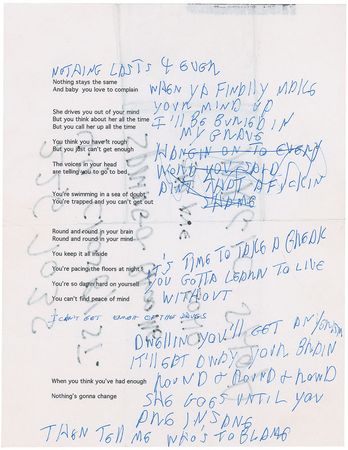 NOTHING LASTS 4 EVER
Nothing stays the same
And baby you love to complain
WHEN YA FINALLY MAKE
YOUR MIND UP
She drives you out of your mind
But you think about her all the time
I'LL BE BURIED IN
But you call her up all the time
MY GRAVE
You think you have it rough
But you just can't get enough
HANGIN ON TO EVERY
WORD YOU SAID
The voices in your head
are telling you to go to bed
AINT THAT A FUCKIN
SHAME
You're swimming in a sea of doubt
You're trapped and you can't get out
Round and round in your brain
Round and round in your mind
You keep it all inside
IT'S TIME TO TAKE A BREAK
You're pacing the floors at night
YOU GOTTA LEARN TO LIVE
You're so damn hard on yourself
WITHOUT
You can't find peace of mind
I CAN'T GET OF THE DRUGS
DWELLIN YOU'LL GET AN
IT'LL EAT AWAY YOUR BRAIN
ROUND & ROUND & ROUND
When you think you've had enough
SHE GOES UNTIL YOU
Nothing's gonna change
ARE INSANE
THEN TELL ME WHO'S TO BLAME